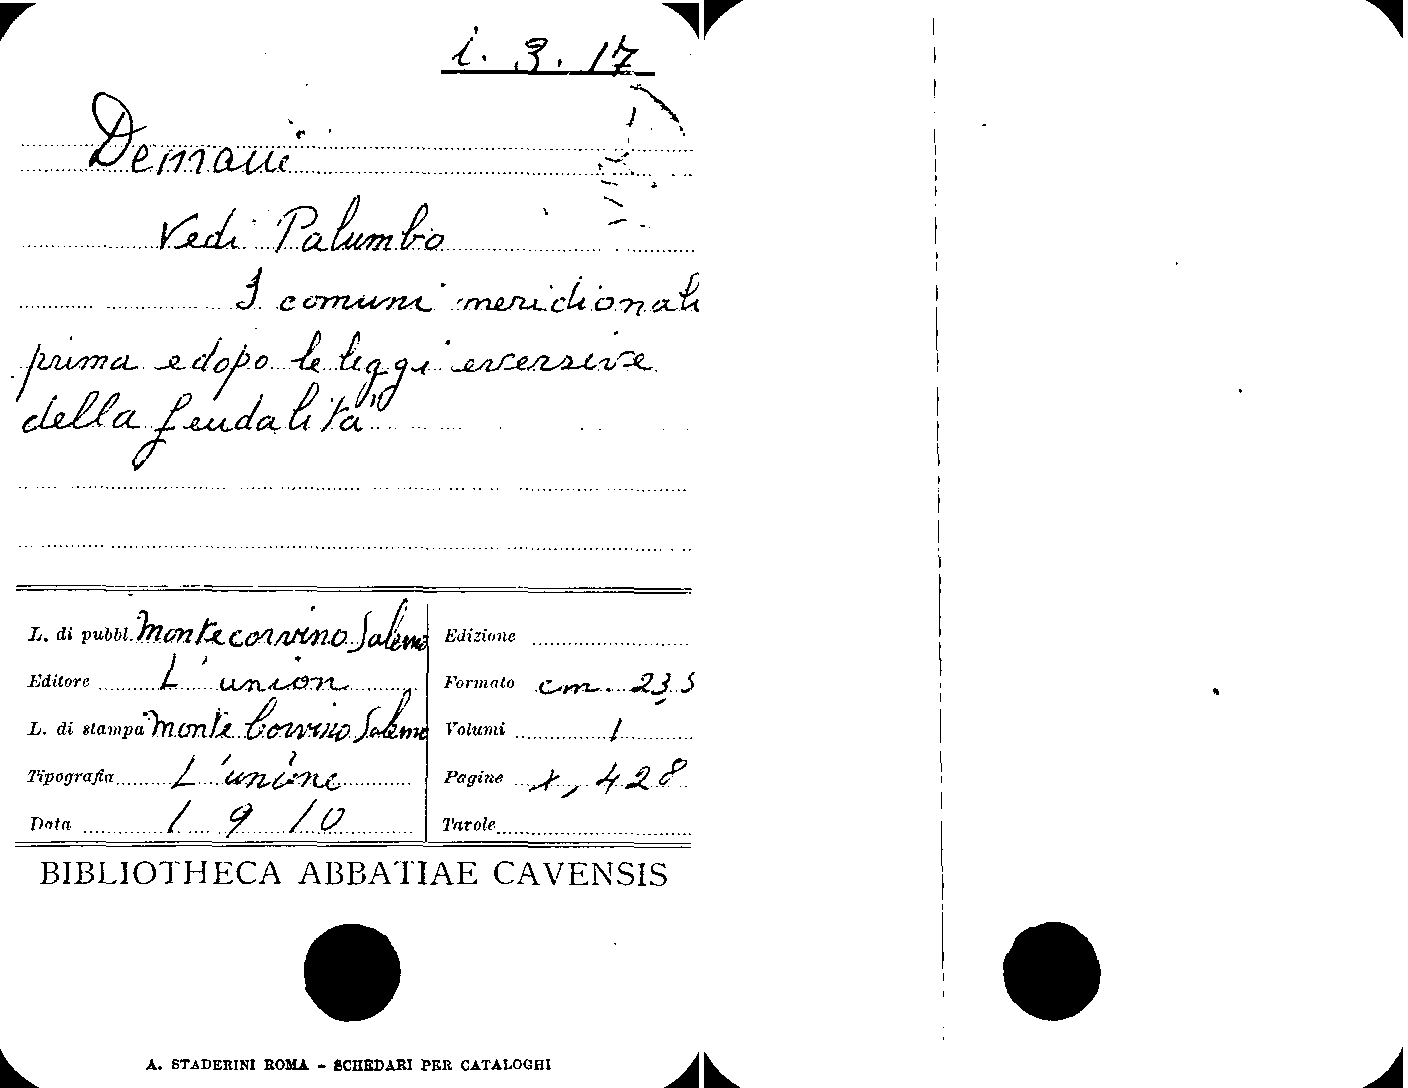 i. 3. 17
Demani
Vedi Palumbo
I comuni meridionali
prima e dopo le leggi eversive
della feudalità
L. di pubbl. Montecorvino Salerno
Edizione
Editore L'union
Formato cm. 23,5
L. di stampa Monte Corvino Salerno
Volumi 1
Tipografia L'unione
Pagine x, 428
Data 1910
Tavole
BIBLIOTHECA ABBATIAE CAVENSIS
A. STADERINI ROMA - SCHEDARI PER CATALOGHI